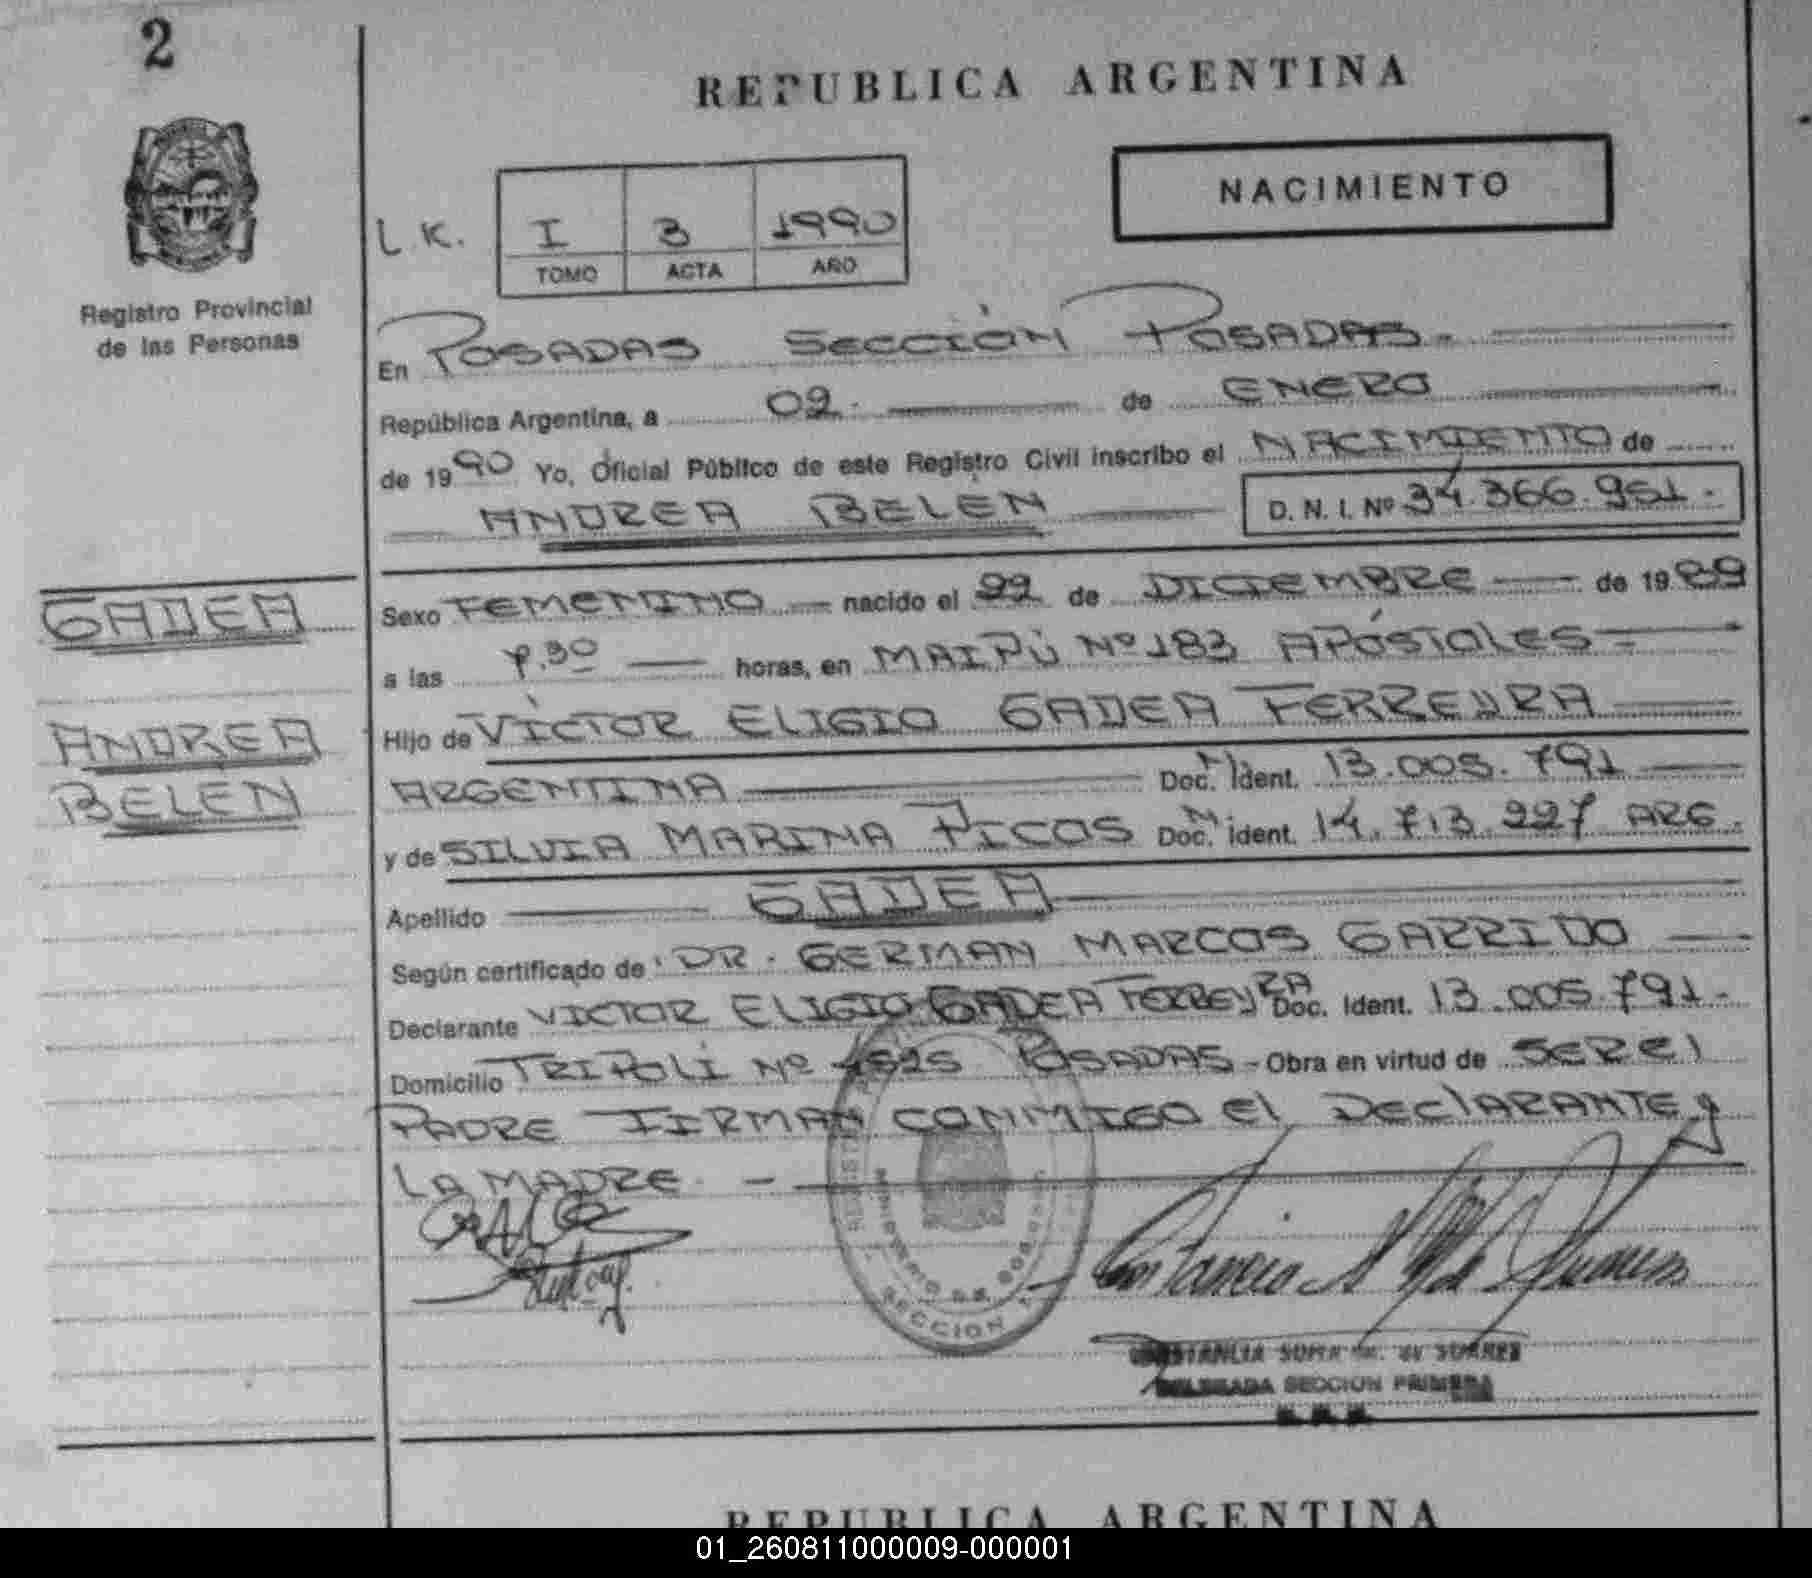 2
REPUBLICA ARGENTINA
NACIMIENTO
L.K. I 3 1990
TOMO ACTA AÑO
Registro Provincial
de las Personas
En POSADAS SECCIÓN POSADAS.-
República Argentina, a 02. de ENERO
de 1990 Yo, Oficial Público de este Registro Civil inscribo el NACIMIENTO de
ANDREA BELÉN D. N. I. Nº 34.366.951.
GADEA
ANDREA
BELÉN
Sexo FEMENINO nacido el 22 de DICIEMBRE de 1989
a las 7.30 horas, en MAIPÚ Nº 183 APÓSTOLES-
Hijo de VÍCTOR ELIGIO GADEA FERREYRA
ARGENTINA Doc. Ident. 13.005.791
y de SILVIA MARINA PICOS Doc. ident. 14.713.227 ARG.
Apellido GADEA
Según certificado de DR. GERMAN MARCOS GARRIDO
Declarante VICTOR ELIGIO GADEA FERREYRA Doc. Ident. 13.005.791.
Domicilio TRIPOLI Nº POSADAS - Obra en virtud de SER El
PADRE FIRMAN CONMIGO El DEClARANTE y
LA MADRE. -
SECCION
DELEGADA SECCION PRIMERA
REPUBLICA ARGENTINA
01_260811000009-000001